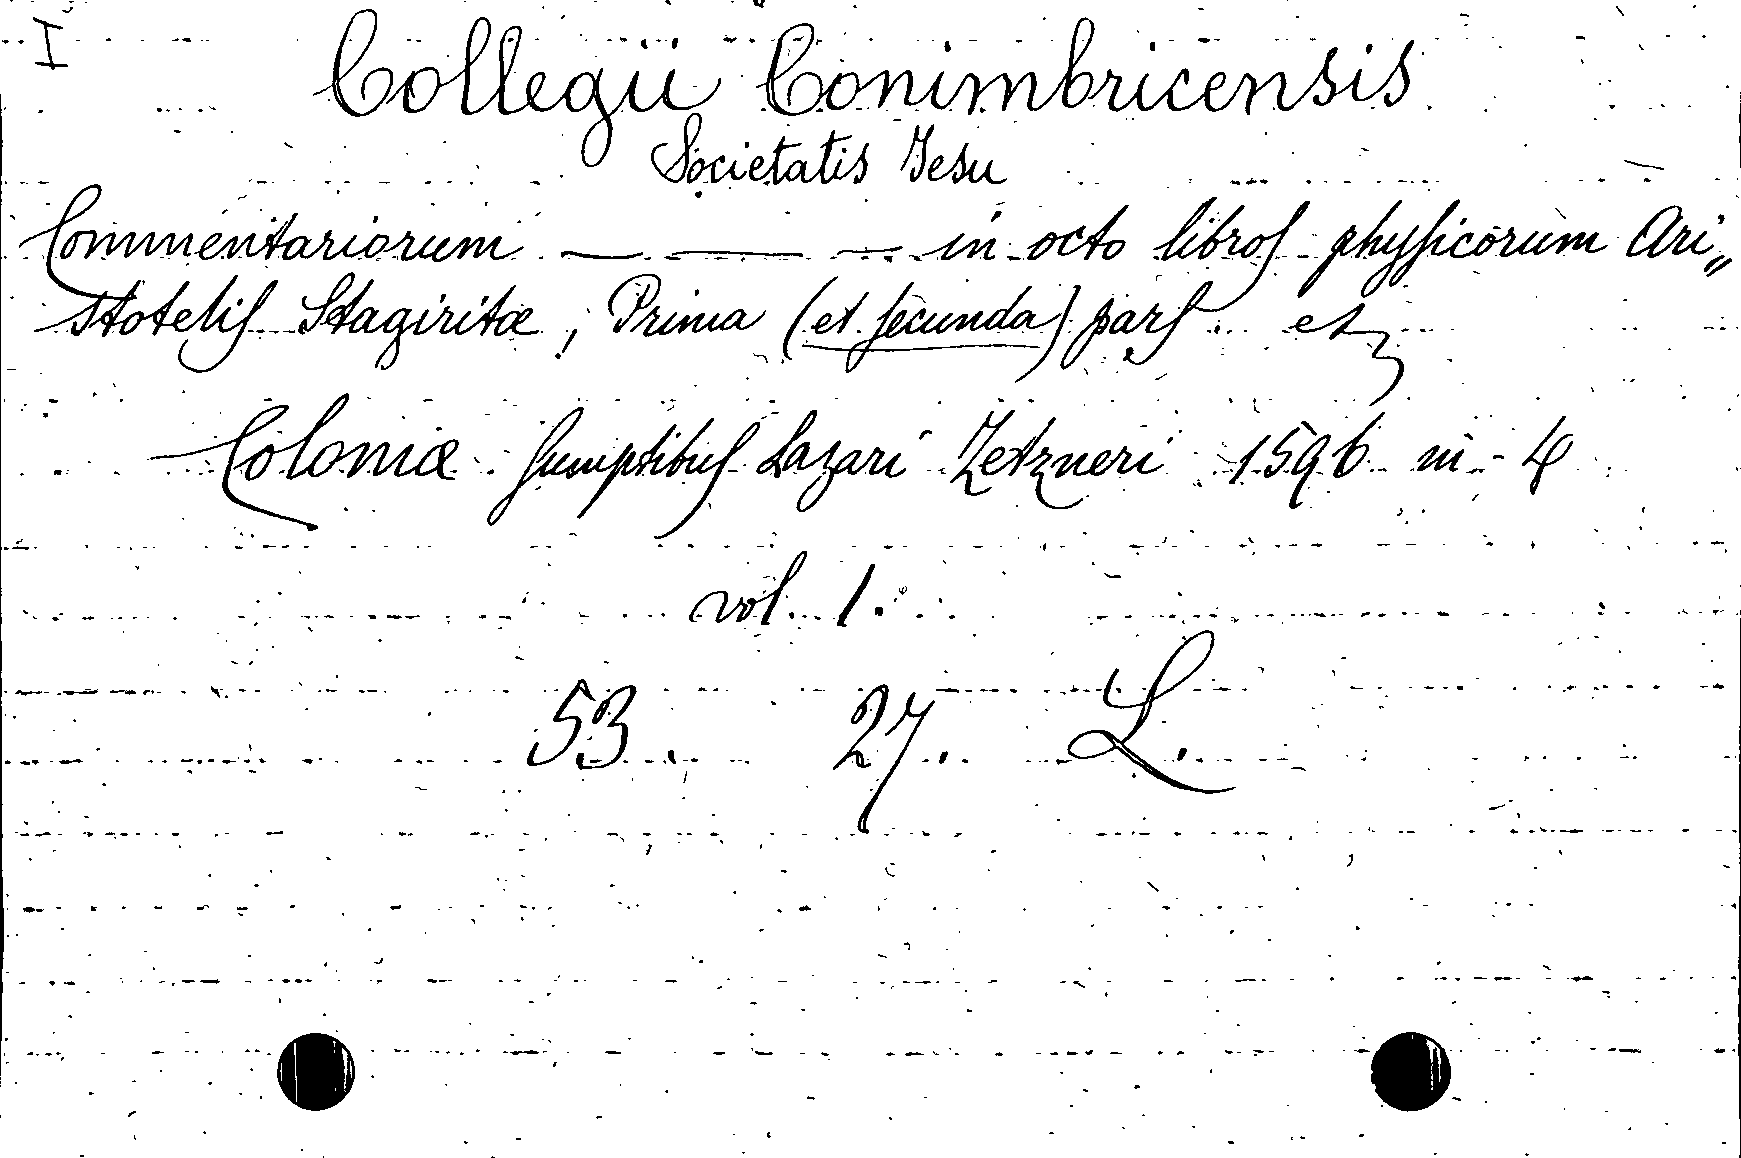 I
Collegii Conimbricensis
Societatis Jesu
Commentariorum — — — in octo libros physicorum Ari„
stotelis Stagiritæ, Prima (et secunda) pars et
Coloniæ sumptibus Lazari Zetzneri 1596 in-4
vol. 1.
53. 27. L.